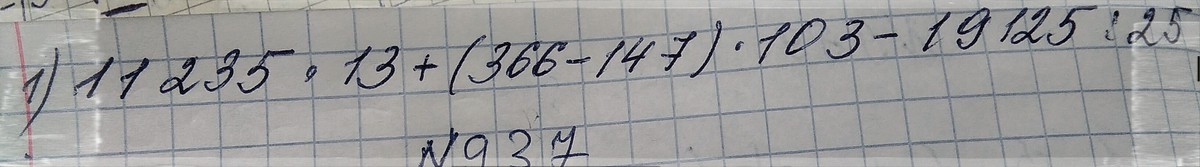 1) 11 235 · 13 + (366 - 147) · 103 - 19 125 : 25
N937